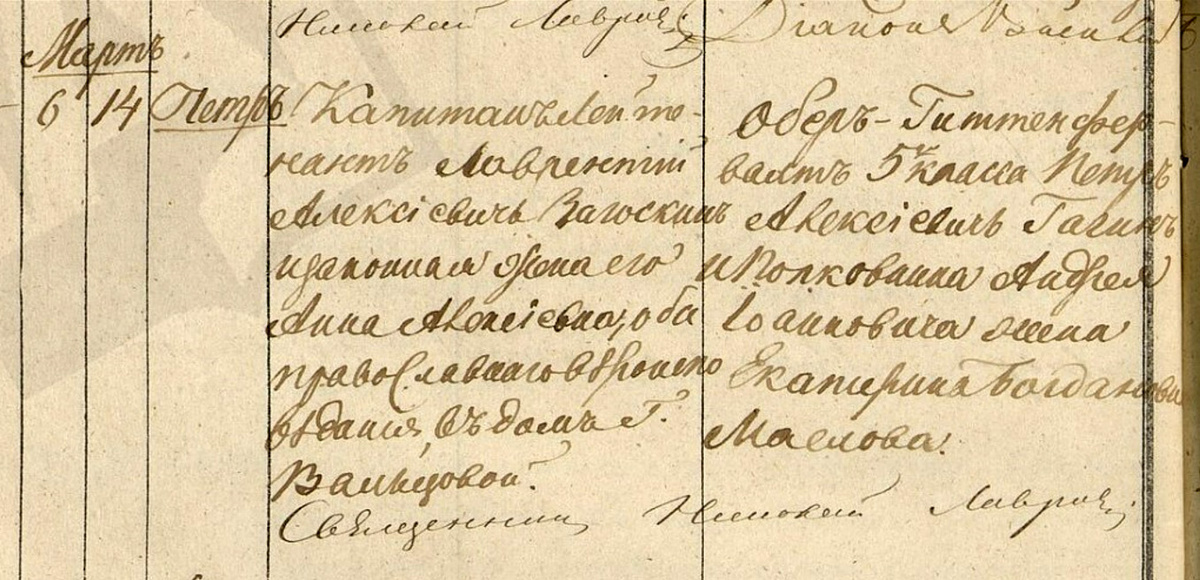 Николай Лавров Диакон
Мартъ
6 14 Петръ
Капитанъ Лейте-
нантъ Лаврентій
Алексіевичь Загоскинъ
и законная жена его
Анна Алексіевна, оба
православнаго вѣроиспо
вѣданія, въ домѣ Г.
Вальцовой.
Оберъ-Гиттенфер-
валтъ 5 класса Петръ
Алексіевичь Гагинъ
и Полковника Андрея
Іоанновича жена
Екатерина Богдановна
Маслова.
Священникъ Николай Лавровъ